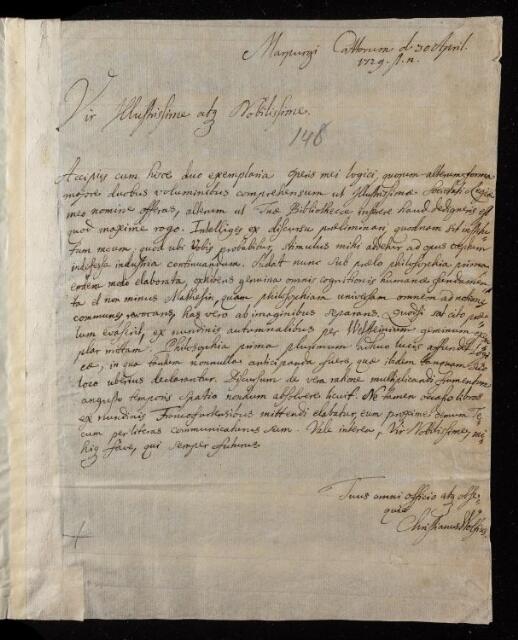 Marpurgi Cattorum d 30 April.
1729. st. n.
Vir Illustrissime atq Nobilissime.
148
Accipis cum hisce duo exemplaria operis mei logici, quorum alterum forma
majore duobus voluminibus comprehensum ut Illustrissimæ Societati Regiæ
meo nomine offeras, alterum ut Tuæ Bibliothecæ inserere haud dedigneris est
quod maxime rogo. Intelliges ex discursu præliminari, quodnam sit institu-
tum meum: quod ubi Vobis probabitur, stimulus mihi addetur ad opus cœptum
indefessa industria continuandum. Sudat nunc sub prælo philosophia prima
eodem modo elaborata, exhibens genuina omnis cognitionis humanæ fundamen-
ta et non minus Mathesin, quam philosophiam universam omnem ad notiones
communes revocans, has vero ab imaginibus separans. Quodsi sat cito præ-
lum evaserit, ex nundinis autumnalibus per geminum exem-
plar mittam. Philosophia prima plurimum hujus lucis affundet Logi-
cæ, in qua tamen nonnulla anticipanda fuere, quæ ibidem tanquam suo
loco uberius declarantur. Discursum de vera ratione multiplicandi frumentum
angusto temporis spatio nondum absolvere licuit. Ne tamen occasio libros
ex nundinis Francofurtensibus mittendi elabatur, eum proxime demum Te-
cum per literas communicaturus sum. Vale interea, Vir Nobilissime, mi-
hiq fave, qui semper futurus
Tuus omni officio atq obse-
quio
Christianus Wolfius